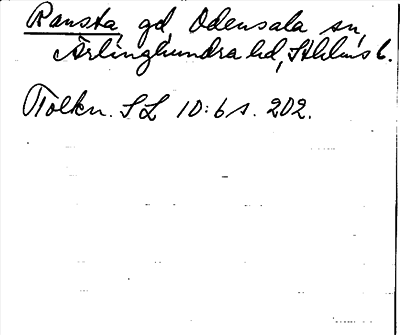 Ransta, gd, Odensala sn,
Ärlinghundra hd, Sthlms l.
Tolkn. SL 10:6 s. 202.